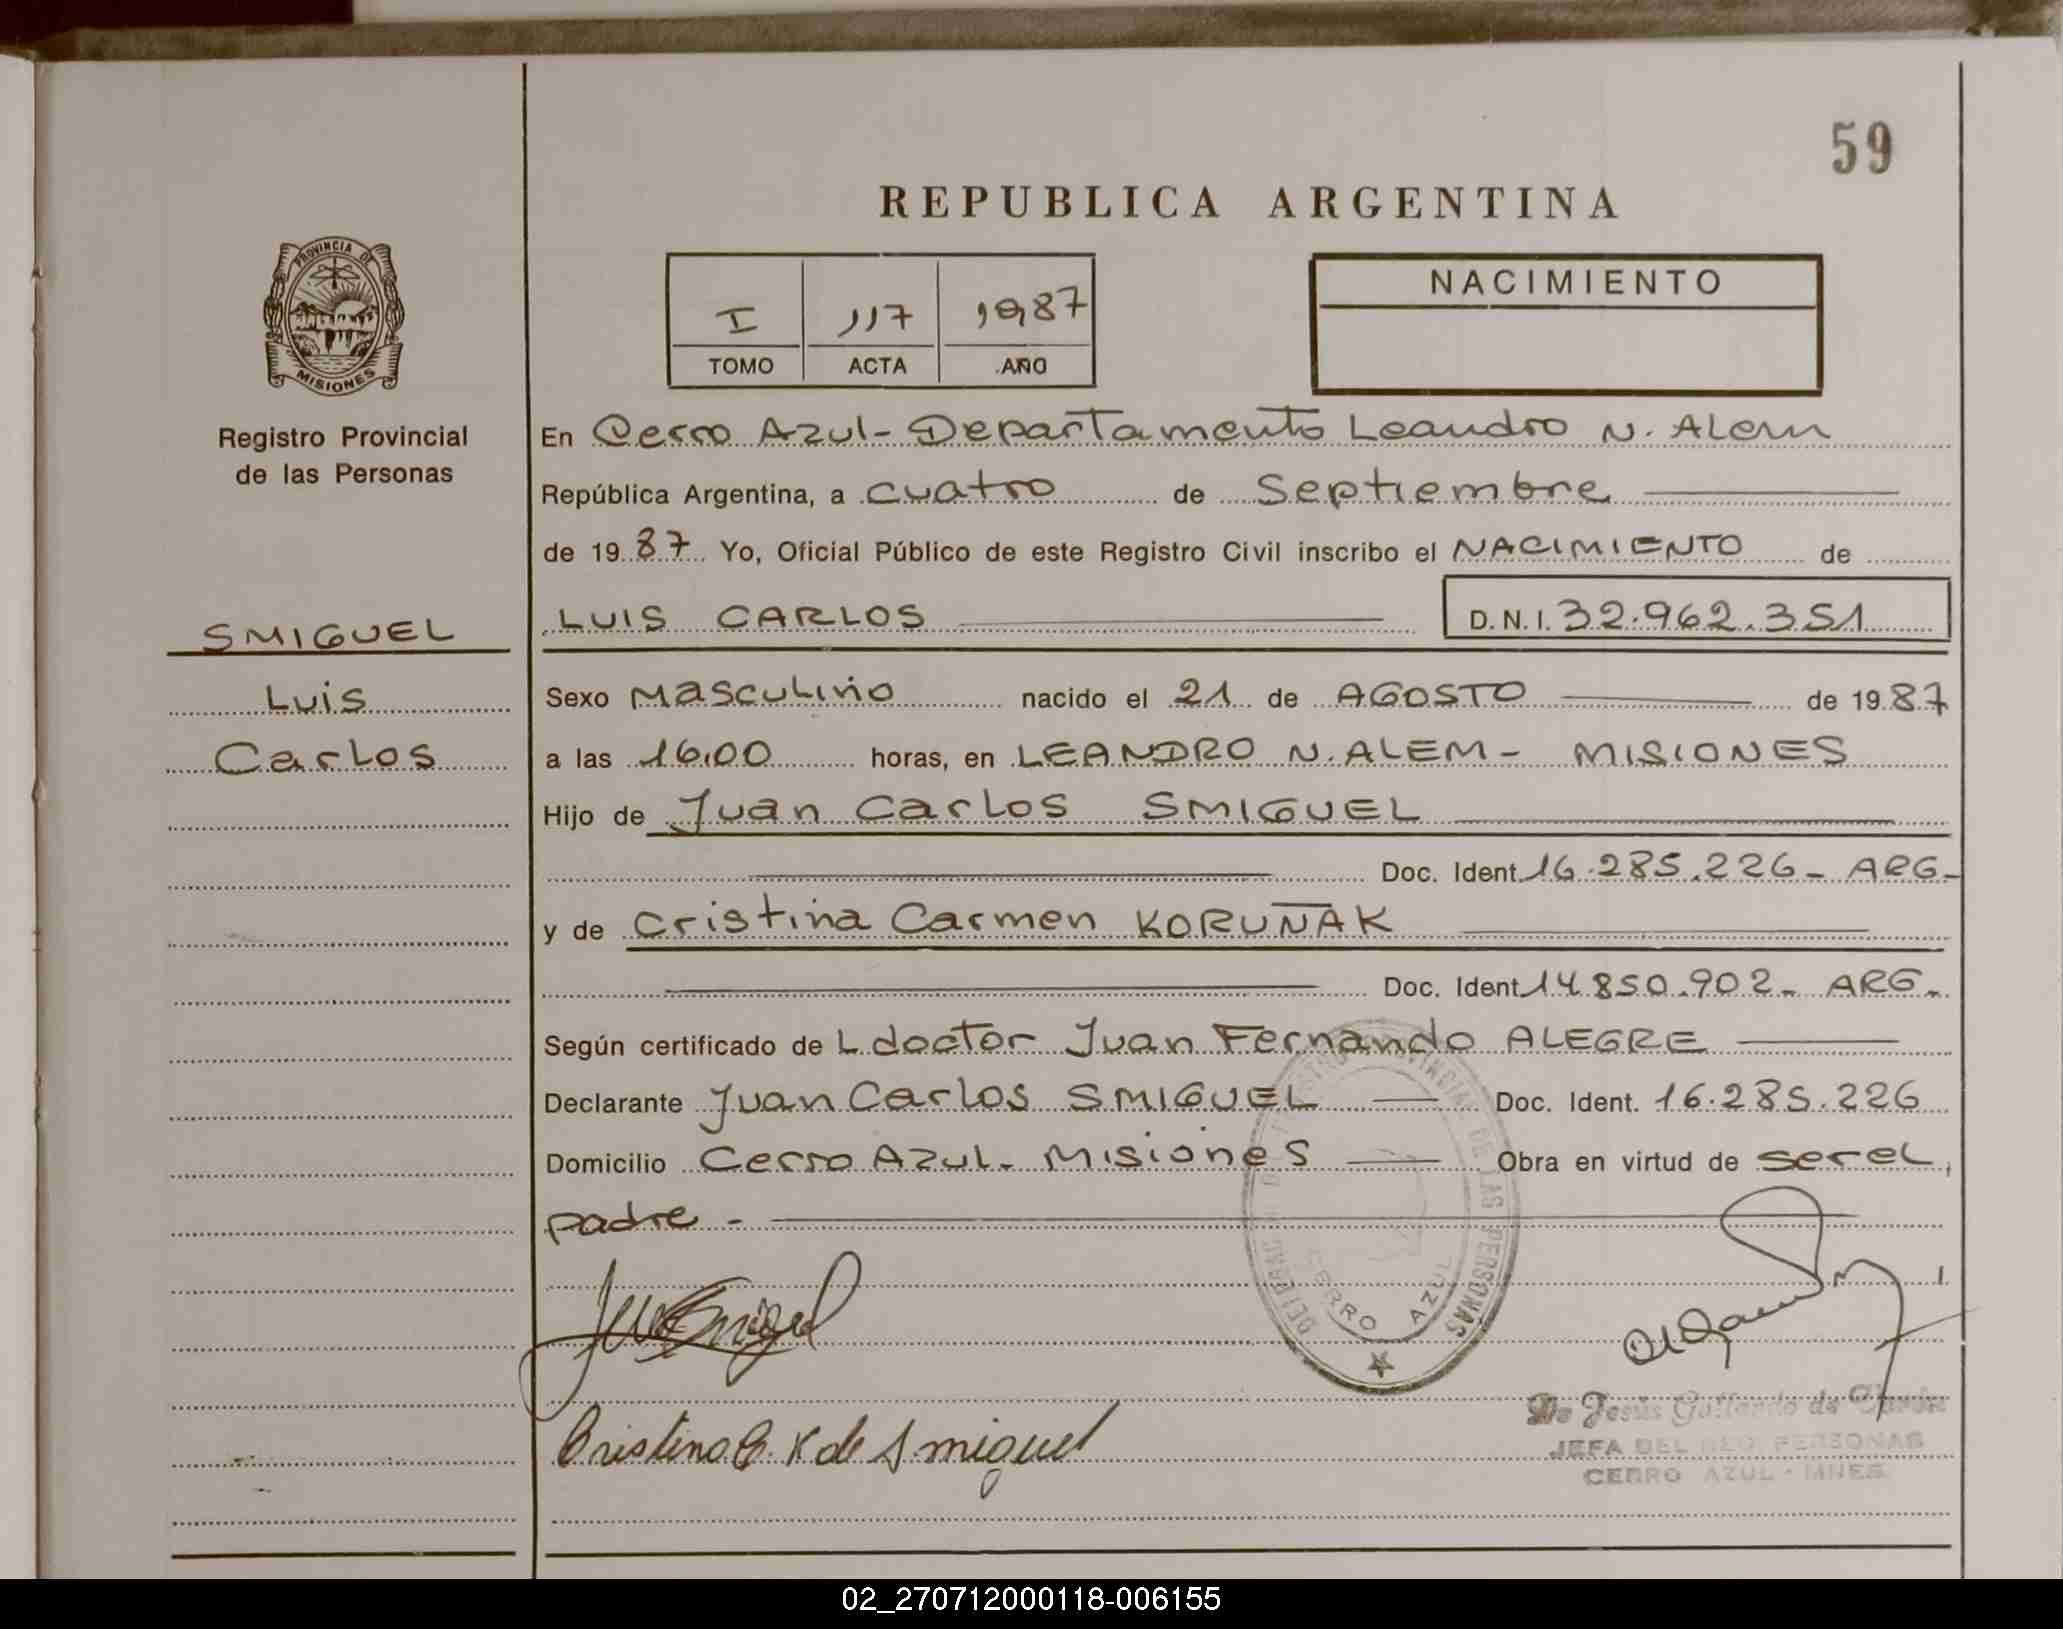 59
REPUBLICA ARGENTINA
PROVINCIA DE
MISIONES
I 117 1987
TOMO ACTA AÑO
NACIMIENTO
Registro Provincial
de las Personas
SMIGUEL
Luis
Carlos
En Cerro Azul - Departamento Leandro N. Alem
República Argentina, a cuatro de Septiembre
de 1987 Yo, Oficial Público de este Registro Civil inscribo el NACIMIENTO de
LUIS CARLOS D.N.I. 32.962.351
Sexo Masculino nacido el 21 de AGOSTO de 1987
a las 16,00 horas, en LEANDRO N. ALEM - MISIONES
Hijo de Juan Carlos SMIGUEL
Doc. Ident. 16.285.226 - ARG -
y de Cristina Carmen KORUÑAK
Doc. Ident. 14.850.902 - ARG -
Según certificado de L doctor Juan Fernando ALEGRE
Declarante Juan Carlos SMIGUEL Doc. Ident. 16.285.226
Domicilio Cerro Azul - Misiones Obra en virtud de ser el
padre -
CERRO AZUL
DE LAS PERSONAS
Cristina C. K de Smiguel
De Jesús Gallardo de
JEFA DEL REG. PERSONAS
CERRO AZUL - MNES.
02_270712000118-006155